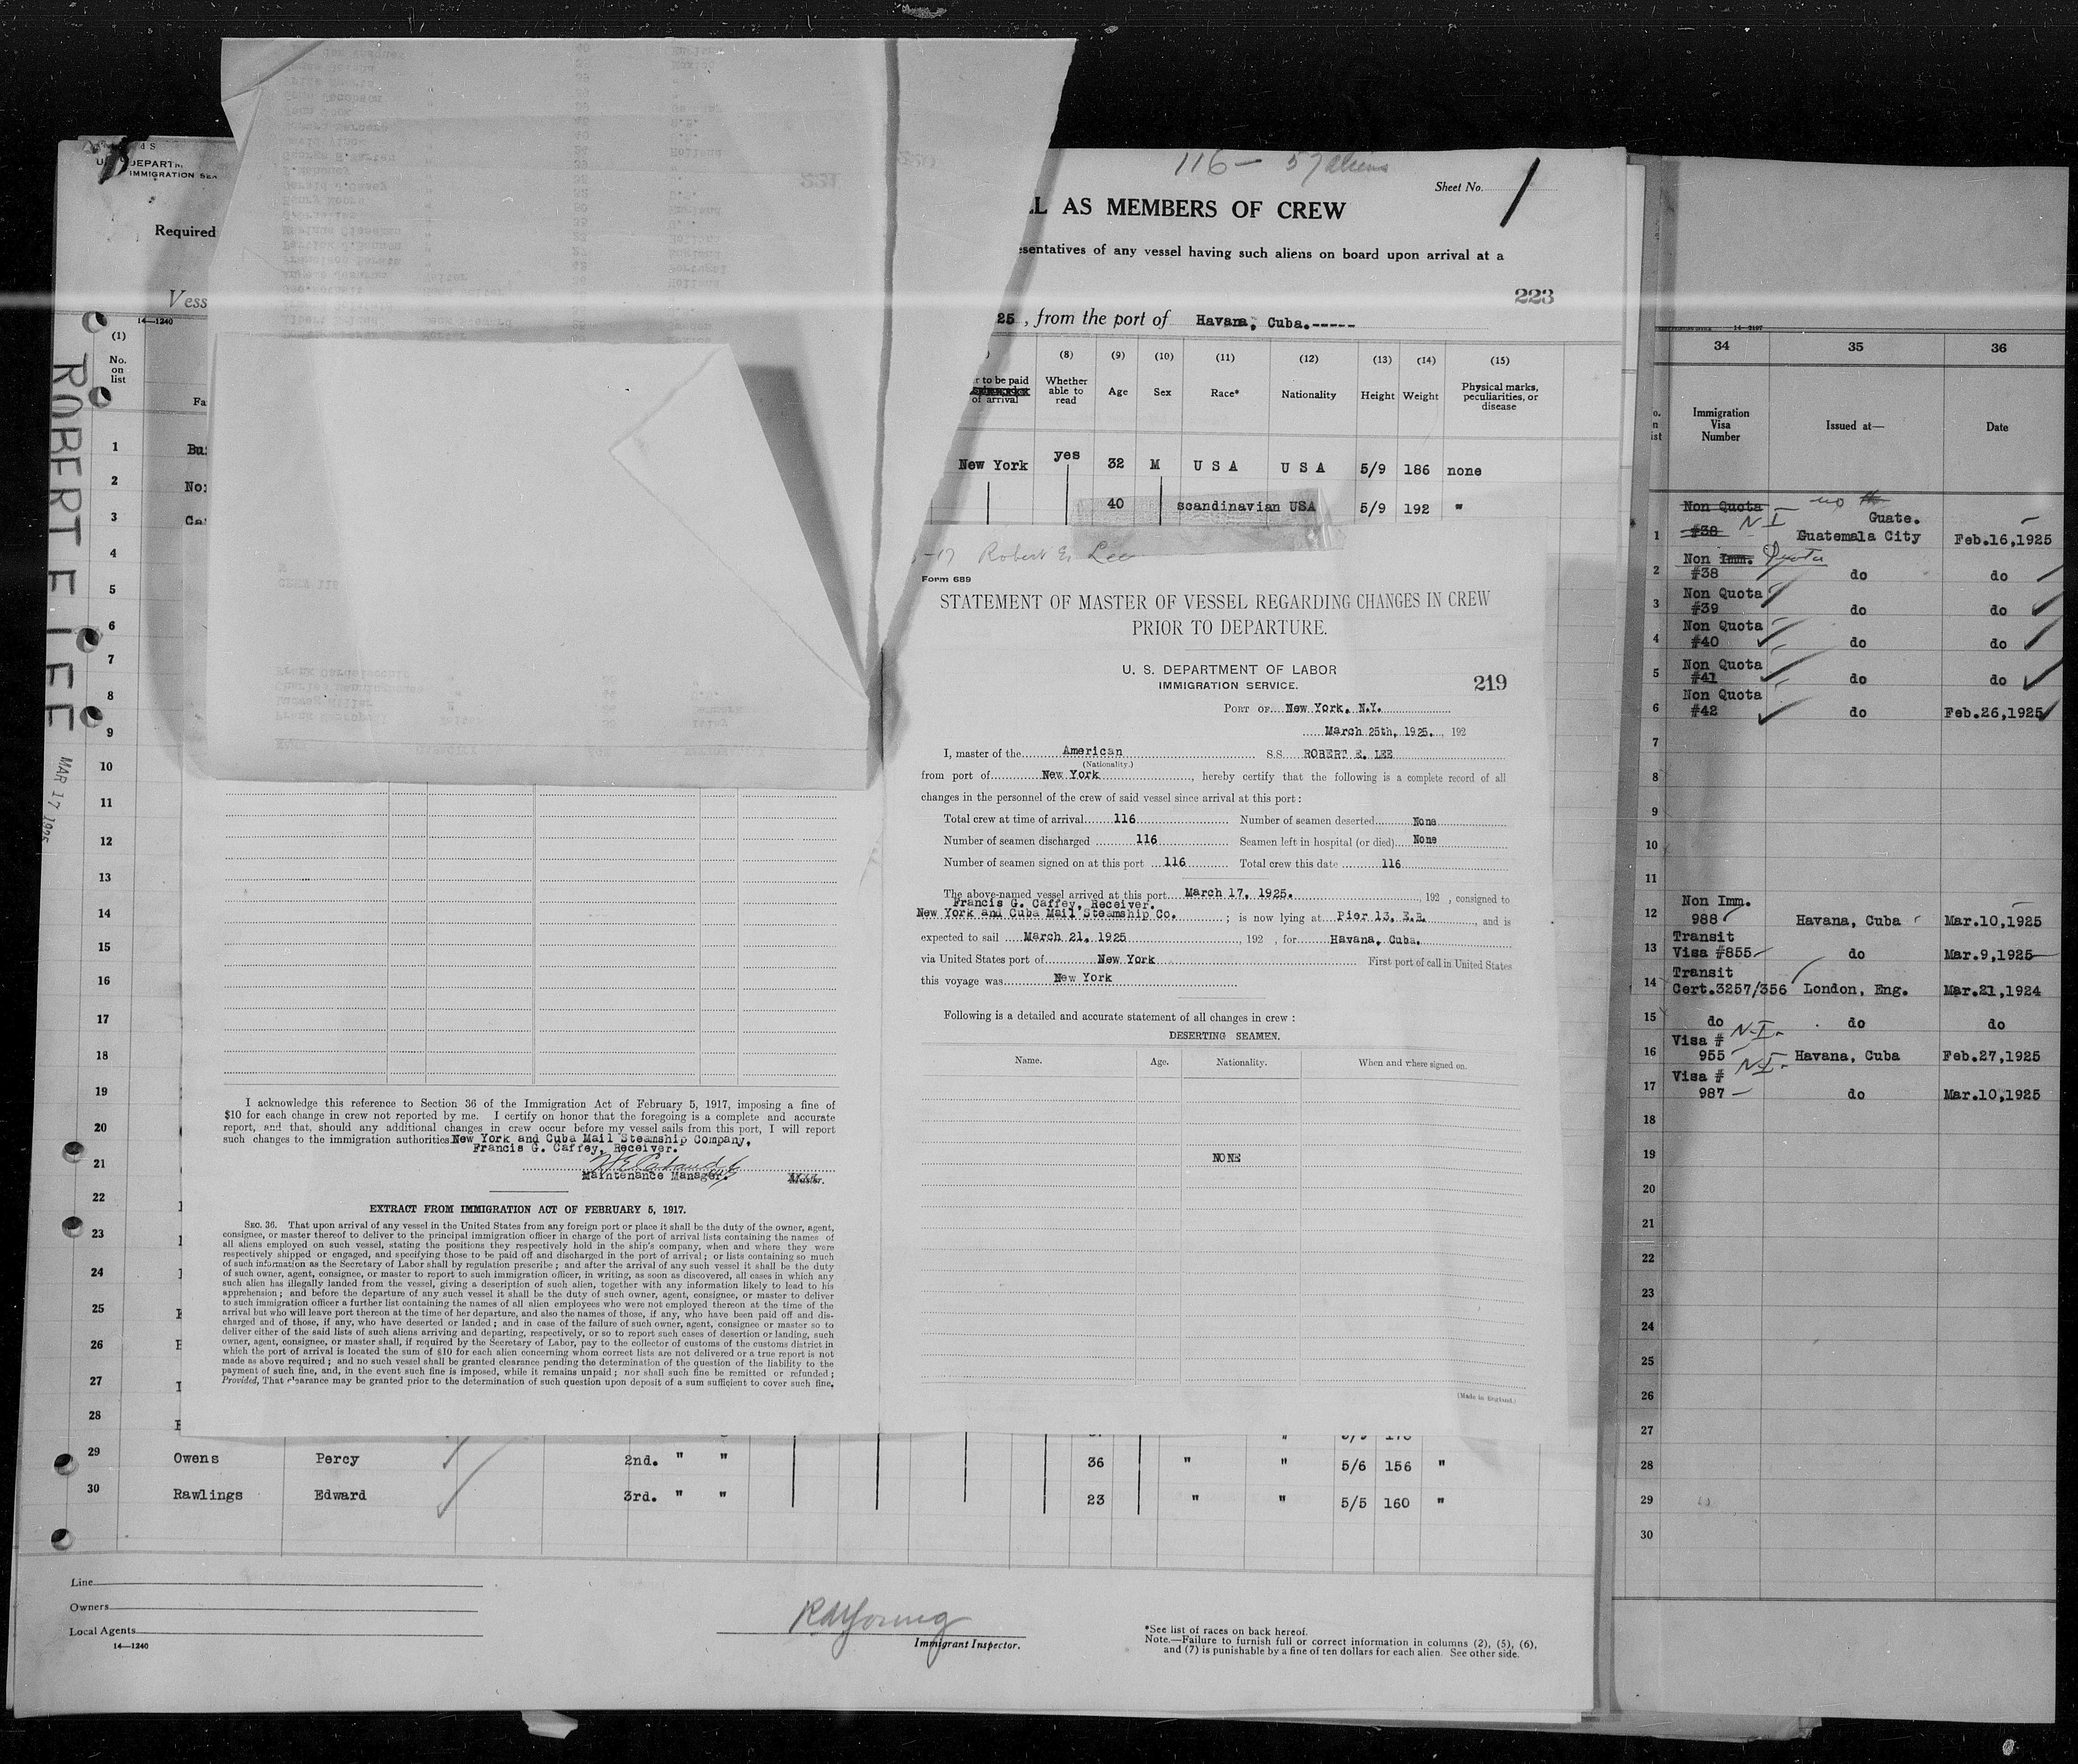 U. S. DEPARTM
IMMIGRATION SE
Required
Vess
14—1240
(1)
No.
on
list
Fa
ROBERT E LEE
MAR 17 1925
1
2
3
4
5
6
7
8
9
10
11
12
13
14
15
16
17
18
19
20
21
22
23
24
25
26
27
28
29
30
116 — 57 aliens
Sheet No. 1
LL AS MEMBERS OF CREW
esentatives of any vessel having such aliens on board upon arrival at a
223
25 , from the port of Havana, Cuba.-----
(8) (9) (10) (11) (12) (13) (14) (15)
r to be paid
of arrival
Whether
able to
read
Age
Sex
Race*
Nationality
Height
Weight
Physical marks,
peculiarities, or
disease
New York yes 32 M U S A U S A 5/9 186 none
40 scandinavian USA 5/9 192 "
-17 Robert E. Lee
Form 689
STATEMENT OF MASTER OF VESSEL REGARDING CHANGES IN CREW
PRIOR TO DEPARTURE.
U. S. DEPARTMENT OF LABOR
IMMIGRATION SERVICE.
219
PORT OF New York, N.Y.
March 25th, 1925., 192
I, master of the American S.S. ROBERT E. LEE
(Nationality.)
from port of New York, hereby certify that the following is a complete record of all
changes in the personnel of the crew of said vessel since arrival at this port :
Total crew at time of arrival 116 Number of seamen deserted None
Number of seamen discharged 116 Seamen left in hospital (or died) None
Number of seamen signed on at this port 116 Total crew this date 116
The above-named vessel arrived at this port March 17, 1925. , 192 , consigned to
Francis G. Caffey, Receiver.
New York and Cuba Mail Steamship Co. ; is now lying at Pier 13, E.R. , and is
expected to sail March 21, 1925 , 192 , for Havana, Cuba.
via United States port of New York First port of call in United States
this voyage was New York
Following is a detailed and accurate statement of all changes in crew :
DESERTING SEAMEN.
Name. Age. Nationality. When and where signed on.
NONE
(Made in England.)
I acknowledge this reference to Section 36 of the Immigration Act of February 5, 1917, imposing a fine of
$10 for each change in crew not reported by me. I certify on honor that the foregoing is a complete and accurate
report, and that, should any additional changes in crew occur before my vessel sails from this port, I will report
such changes to the immigration authorities. New York and Cuba Mail Steamship Company,
Francis G. Caffey, Receiver.
Maintenance Manager. Master.
EXTRACT FROM IMMIGRATION ACT OF FEBRUARY 5, 1917.
SEC. 36. That upon arrival of any vessel in the United States from any foreign port or place it shall be the duty of the owner, agent,
consignee, or master thereof to deliver to the principal immigration officer in charge of the port of arrival lists containing the names of
all aliens employed on such vessel, stating the positions they respectively hold in the ship's company, when and where they were
respectively shipped or engaged, and specifying those to be paid off and discharged in the port of arrival ; or lists containing so much
of such information as the Secretary of Labor shall by regulation prescribe ; and after the arrival of any such vessel it shall be the duty
of such owner, agent, consignee, or master to report to such immigration officer, in writing, as soon as discovered, all cases in which any
such alien has illegally landed from the vessel, giving a description of such alien, together with any information likely to lead to his
apprehension ; and before the departure of any such vessel it shall be the duty of such owner, agent, consignee, or master to deliver
to such immigration officer a further list containing the names of all alien employees who were not employed thereon at the time of the
arrival but who will leave port thereon at the time of her departure, and also the names of those, if any, who have been paid off and dis-
charged and of those, if any, who have deserted or landed ; and in case of the failure of such owner, agent, consignee or master so to
deliver either of the said lists of such aliens arriving and departing, respectively, or so to report such cases of desertion or landing, such
owner, agent, consignee, or master shall, if required by the Secretary of Labor, pay to the collector of customs of the customs district in
which the port of arrival is located the sum of $10 for each alien concerning whom correct lists are not delivered or a true report is not
made as above required ; and no such vessel shall be granted clearance pending the determination of the question of the liability to the
payment of such fine, and, in the event such fine is imposed, while it remains unpaid ; nor shall such fine be remitted or refunded ;
Provided, That clearance may be granted prior to the determination of such question upon deposit of a sum sufficient to cover such fine,
Owens Percy 2nd. " " 36 " " 5/6 156 "
Rawlings Edward 3rd. " " 23 " " 5/5 160 "
Line
Owners
Local Agents
14—1240
Immigrant Inspector.
*See list of races on back hereof.
Note.—Failure to furnish full or correct information in columns (2), (5), (6),
and (7) is punishable by a fine of ten dollars for each alien. See other side.
34 35 36
Immigration
Visa
Number
Issued at—
Date
Non Quota no
1 #38 N I Guate. Guatemala City Feb.16,1925
Non Imm. Quota
2 #38 do do
Non Quota
3 #39 do do
Non Quota
4 #40 do do
Non Quota
5 #41 do do
Non Quota
6 #42 do Feb.26,1925
7
8
9
10
11
Non Imm.
12 988 Havana, Cuba Mar.10,1925
Transit
13 Visa #855 do Mar.9,1925
Transit
14 Cert.3257/356 London, Eng. Mar.21,1924
15 do do do
Visa # N-I-
16 955 Havana, Cuba Feb.27,1925
Visa # N-I-
17 987 do Mar.10,1925
18
19
20
21
22
23
24
25
26
27
28
29
30